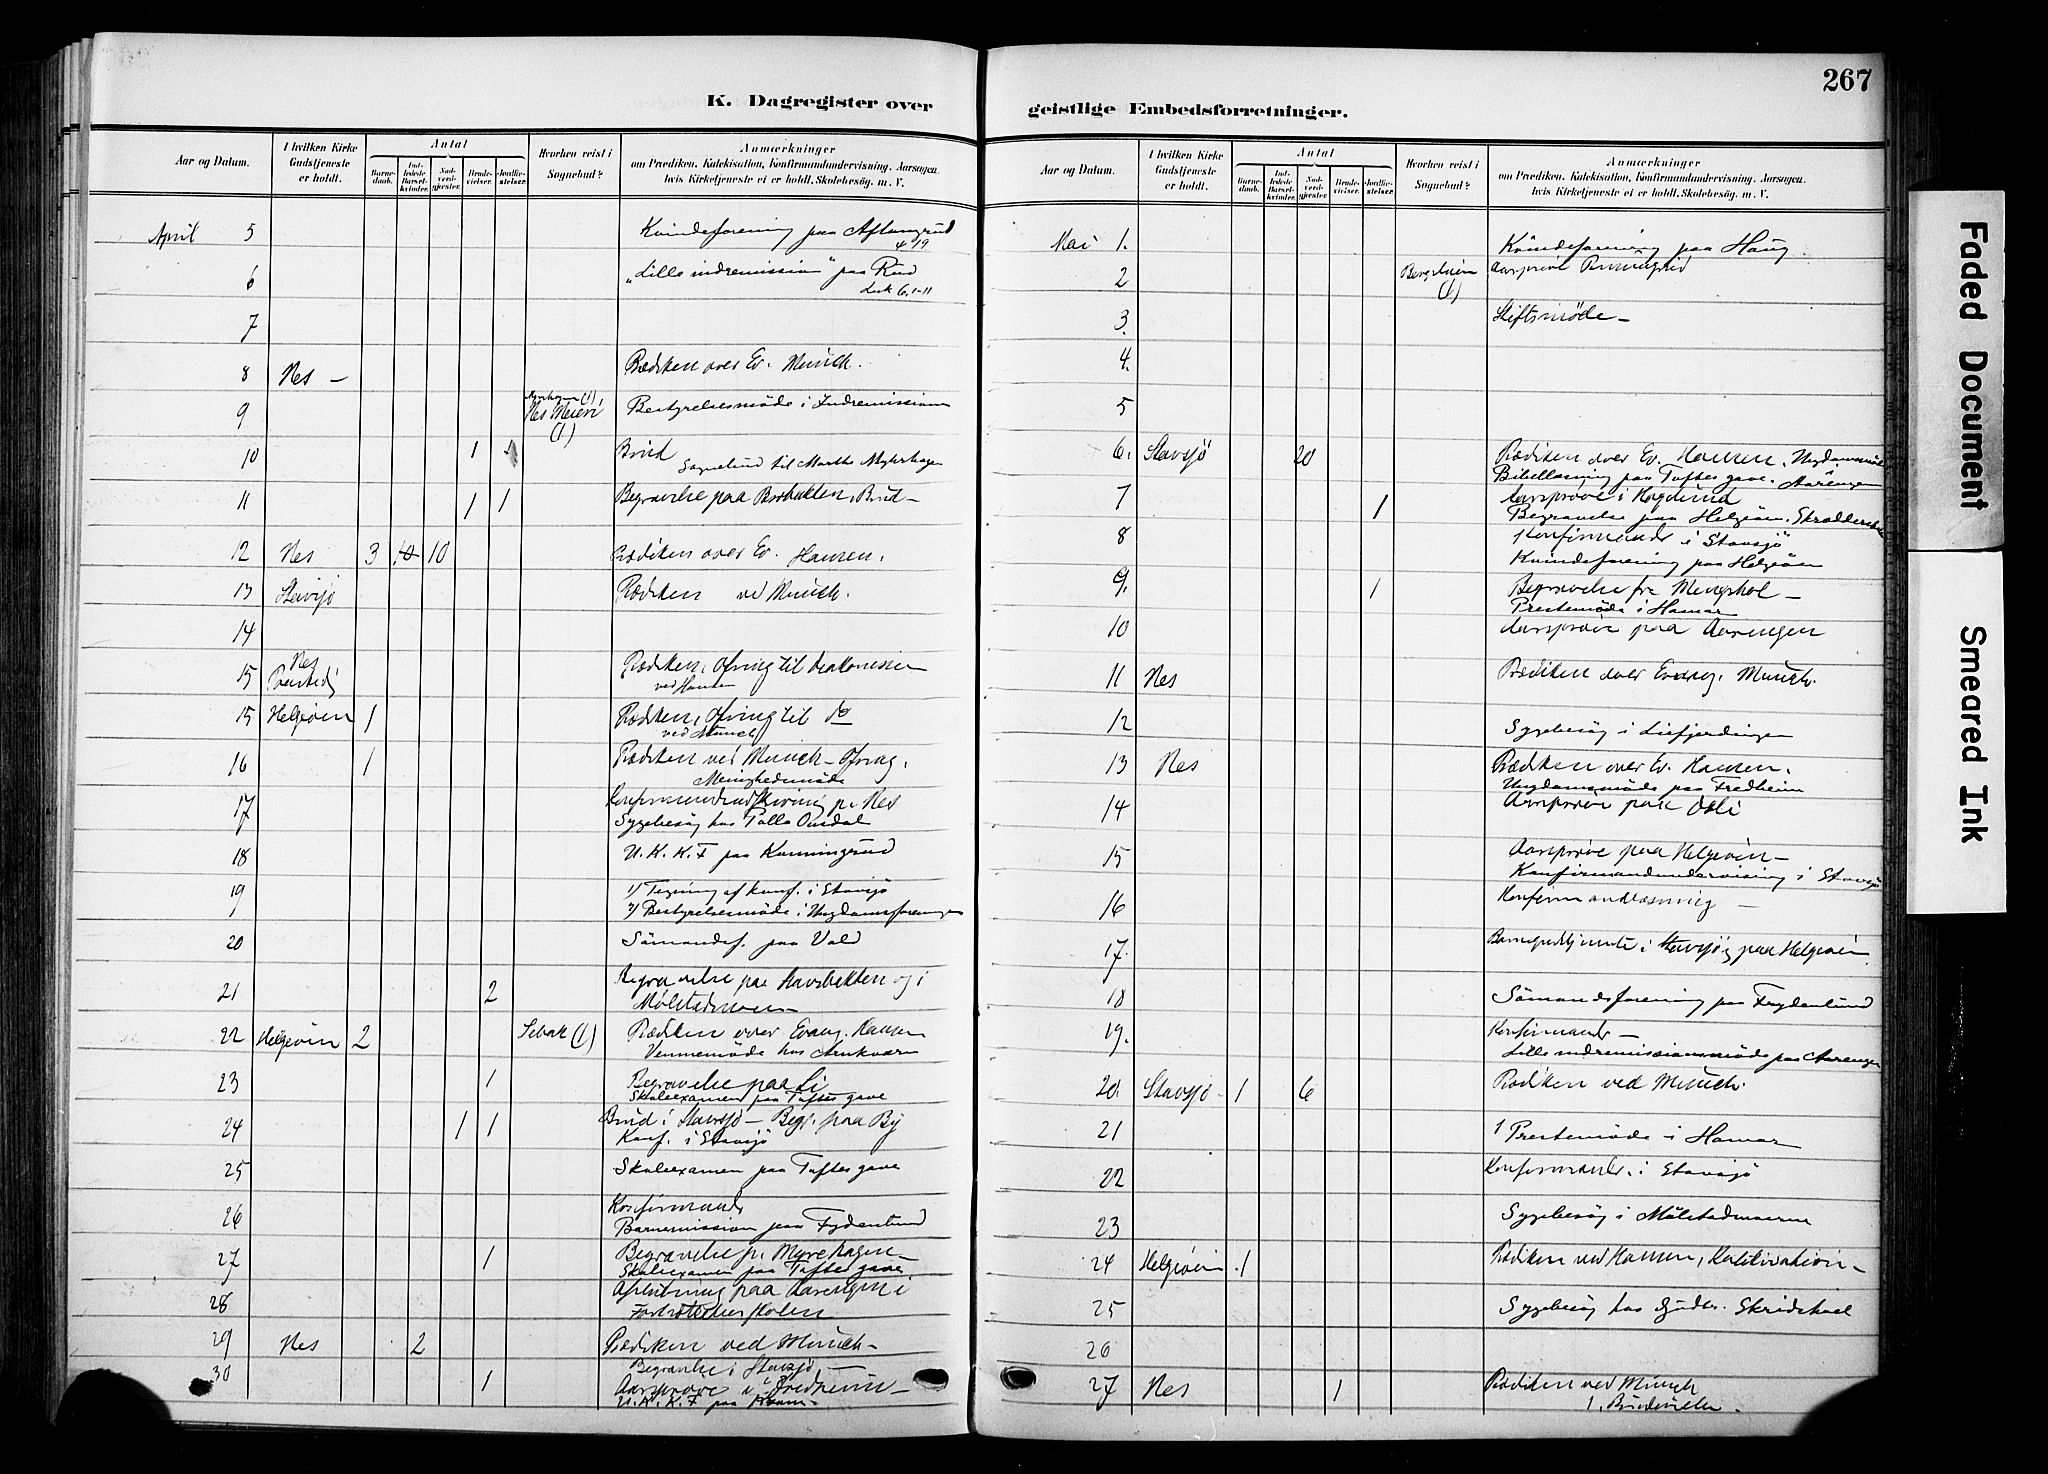 267
K. Dagregister over
geistlige Embedsforretninger.
Aar og Datum.
I hvilken Kirke Gudstjeneste er holdt.
Antal
Barnedaab.
Indledede Barselkvinder.
Nadverdgjester.
Brudevielser.
Jordfæstelser.
Hvorhen reist i Sognebud?
Anmærkninger
om Prædiken, Katekisation, Konfirmandundervisning, Aarsagen,
hvis Kirketjeneste ei er holdt, Skolebesøg, m. V.
April 5 Kvindeforening paa Aftangrud
4-19
6 "Lille indremission" paa Rud
Luk 6.1-11
7
8 Nes - Prædiken over Ev. Munch.
9 (1), Nes Meieri (1) Bestyrelsesmøde i Indremissionen
10 1 Brud
Sognebud til Marthe Myhrhagen
11 1 1 Begravelse paa Brud -
12 Nes 3 10 10 Prædiken over Ev. Hansen.
13 Stavsjø Prædiken ved Munch.
14
15 Nes Prædiken, Ofring til diakonissen
ved Hansen
15 Helgøien 1 Prædiken, Ofring til do
ved Munch
16 1 Prædiken ved Munch - Ofring.
Menighedsmøde
17 p. Nes
Sygebesøg hos
18 U. K. K. F paa Kanningrud
19 1) Tegning af konf. i Stavsjø
2) Bestyrelsesmøde i Ungdomsforeningen
20 Sömandsf. paa Vold
21 2 Begravelse paa og i
Mølstadmoen
22 Helgøien 2 (1) Prædiken over Evang. Hansen
Vennemøde hos
23 1 Begravelse paa Li
Skoleexamen paa Toftes gave
24 1 1 Brud i Stavsjø - Begr. paa By
Konf. i Stavsjø
25 Skoleexamen paa Toftes gave
26 Konfirmand
Barnemission paa Frydenlund
27 1 Begravelse p. Myrehagen -
Skoleexamen paa Toftes gave
28 Afslutning paa Aarengen i
Fortsættelsesskolen
29 Nes 2 Prædiken ved Munch -
30 1 Begravelse i Stavsjø -
Aarsprøve i Fredheim -
U. K. K. F paa
Aar og Datum.
I hvilken Kirke Gudstjeneste er holdt.
Antal
Barnedaab.
Indledede Barselkvinder.
Nadverdgjester.
Brudevielser.
Jordfæstelser.
Hvorhen reist i Sognebud?
Anmærkninger
om Prædiken, Katekisation, Konfirmandundervisning, Aarsagen,
hvis Kirketjeneste ei er holdt, Skolebesøg, m. V.
Mai 1. Kvindeforening paa Haug
2 (1) Aarsprøve
3. Stiftsmøde -
4.
5
6. Stavsjø 20 Prædiken over Ev. Hansen, Ungdomsmøde
Bibellæsning paa Toftes gave. Aarengen
7 1 Aarsprøve i
Begravelse paa Helgøien.
8 Konfirmander i Stavsjø
Kvindeforening paa Helgøien
9. 1 Begravelse fra Mengshol -
Prestemøde i Hamar
10 Aarsprøve paa Aarengen
11 Nes Prædiken over Evang. Munch.
12 Sygebesøg i
13 Nes Prædiken over Ev. Hansen.
Ungdomsmøde paa Fredheim
14 Aarsprøve paa
15 Aarsprøve paa Helgøien -
Konfirmandundervisning i Stavsjø
16 Konfirmandlæsning -
17. Barnegudstjeneste i Stavsjø, paa Helgøien
18 Sömandsforening paa Frydenlund
19. Konfirmander -
Lille indremissionsmøde paa Aarengen
20. Stavsjø - 1 6 Prædiken ved Munch.
21 1 Prestemøde i Hamar
22 Konfirmander i Stavsjø
23 Sygebesøg i Mølstadmoerne
24 Helgøien 1 Prædiken ved Hansen, Katekisation -
25 Sygebesøg hos Skridshol
26
27 Nes 1 Prædiken ved Munch
1. Brudevielse -
Faded Document
Smeared Ink